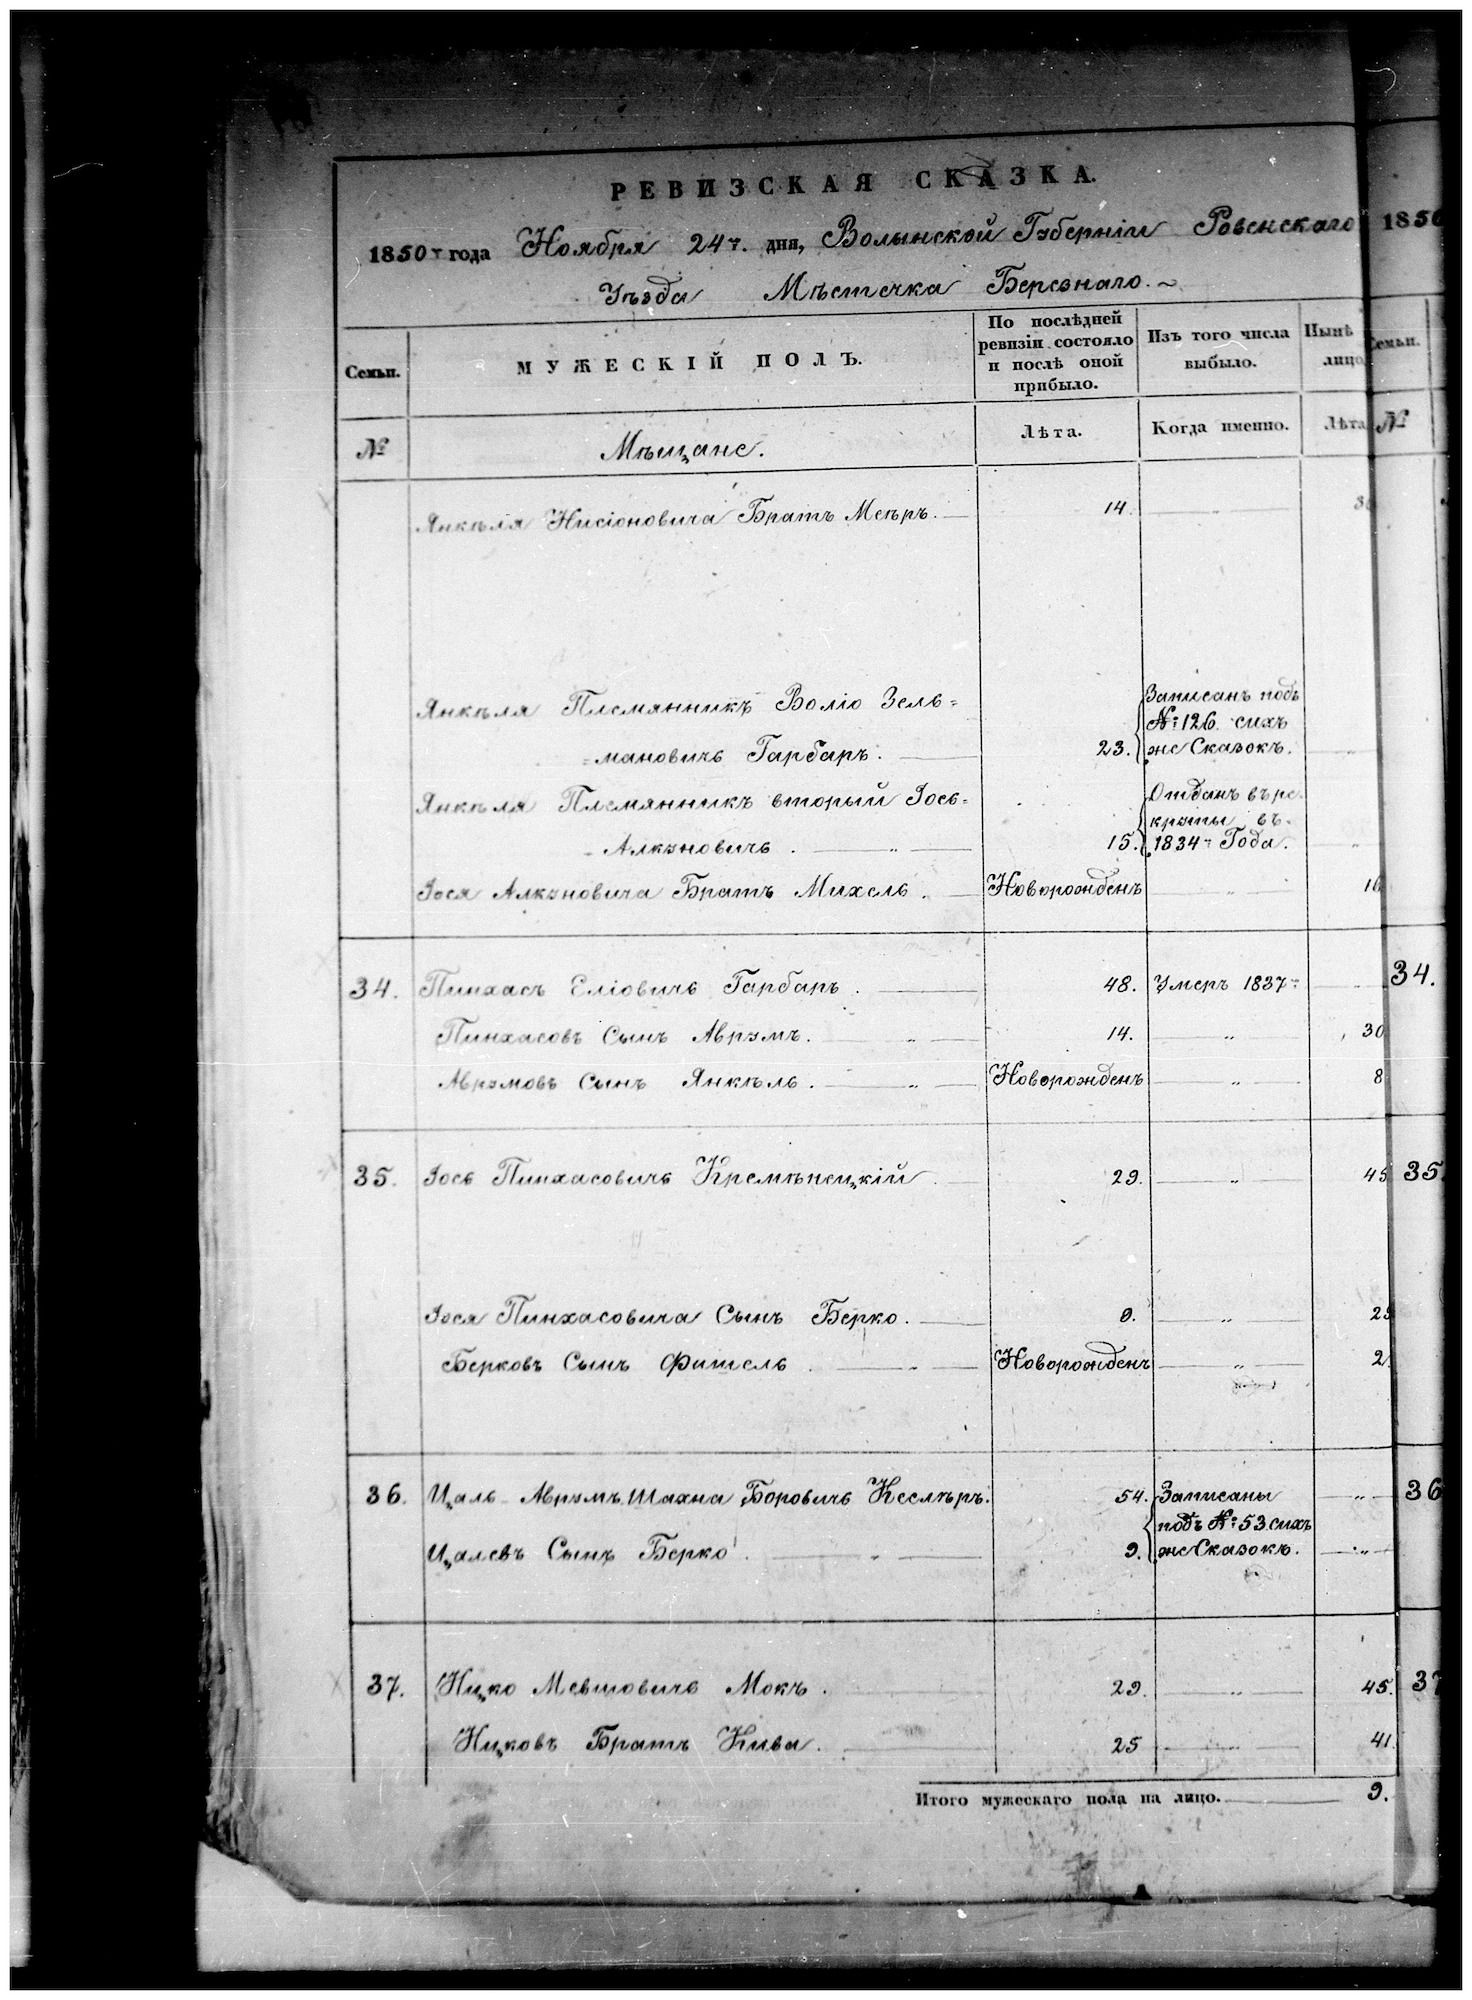 РЕВИЗСКАЯ СКАЗКА.
1850го года Ноября 24го. дня, Волынской Губерніи Ровенскаго
Уѣзда Мѣстечка Березнаго.
Семьи.
МУЖЕСКІЙ ПОЛЪ.
По послѣдней ревизіи состояло и послѣ оной прибыло.
Изъ того числа выбыло.
Нынѣ лицо
№
Мѣщане.
Лѣта.
Когда именно.
Лѣта
Янкеля Нисіоновича Братъ Меѣръ. 14. „
Янкѣля Племянникъ Воліо Зель=
=мановичь Гарбаръ. 23. Записанъ подъ №: 126. сихъ же Сказокъ. „
Янкѣля Племянникъ вторый Іось=
Алкуновичь. „ 15. Отданъ въ рекруты въ 1834м Года. „
Іося Алкуновича Братъ Михель. Новорожденъ „ 16
34. Пинхасъ Еліовичь Гарбаръ. 48. Умеръ 1837го
Пинхасовъ Сынъ Аврумъ. „ 14. „ 30
Аврумовъ Сынъ Янкѣль. „ Новорожденъ „ 8
35. Іось Пинхасовичь Кремѣнецкій. 29. „ 45
Іося Пинхасовича Сынъ Берко. 9. „ 25
Берковъ Сынъ Фитель. „ Новорожденъ „ 2.
36. Цаль Аврумъ Шахна Боровичь Кеслѣръ. 54. Записаны подъ №: 53 сихъ же Сказокъ. „
Цалевъ Сынъ Берко. „ 9. „
37. Ицко Мевшовичь Мокъ. 29. „ 45.
Ицковъ Братъ Кива. 25 „ 41.
Итого мужескаго пола на лицо. 9.
1850
Семьи.
№
34.
35.
36
37